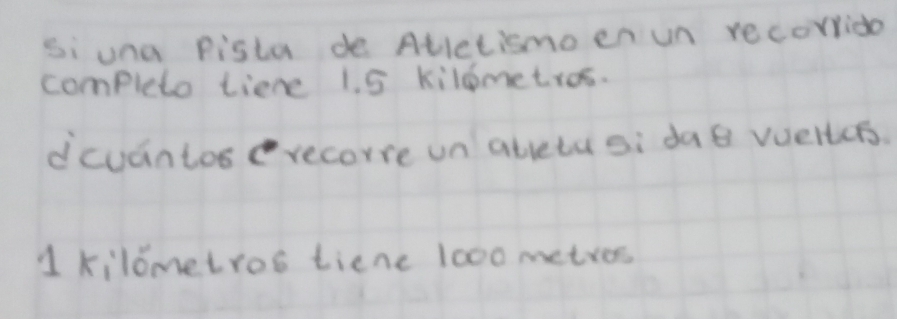 Si una Pista de Atletismo en un recorrido
completo tiene 1.5 kilómetros.
d'cuántos recorre un atleta si da 8 vueltas.
1 kilómetros tiene 1000 metros